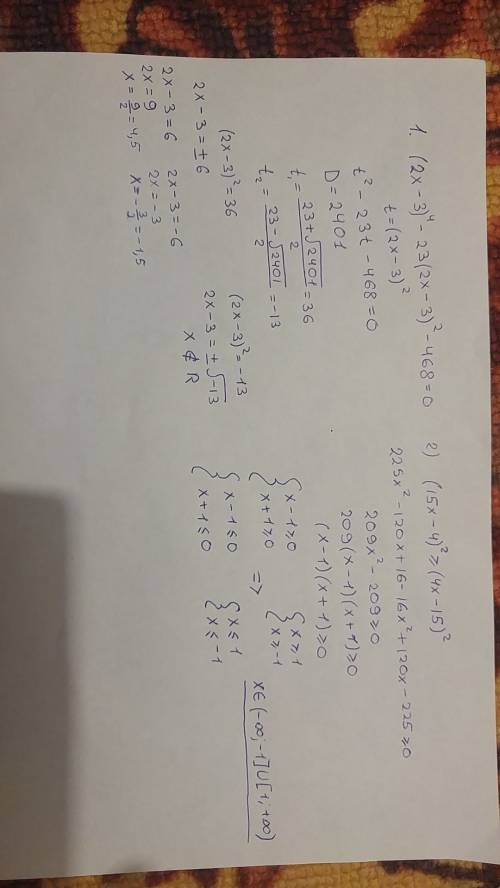 1. (2x-3)⁴ - 23(2x-3)² - 468 = 0
t = (2x-3)²
t² - 23t - 468 = 0
D = 2401
t₁ = (23+√2401)/2 = 36
t₂ = (23-√2401)/2 = -13
(2x-3)² = 36
2x-3 = ±6
2x-3 = 6 2x-3 = -6
2x = 9 2x = -3
x = 9/2 = 4,5 x = -3/2 = -1,5
(2x-3)² = -13
2x-3 = ±√-13
x ∉ R
2) (15x-4)² ≥ (4x-15)²
225x² - 120x + 16 - 16x² + 120x - 225 ≥ 0
209x² - 209 ≥ 0
209(x-1)(x+1) ≥ 0
(x-1)(x+1) ≥ 0
{ x-1 ≥ 0 { x ≥ 1
{ x+1 ≥ 0 { x ≥ -1
=>
{ x-1 ≤ 0 { x ≤ 1
{ x+1 ≤ 0 { x ≤ -1
x ∈ (-∞; -1] U [1; +∞)